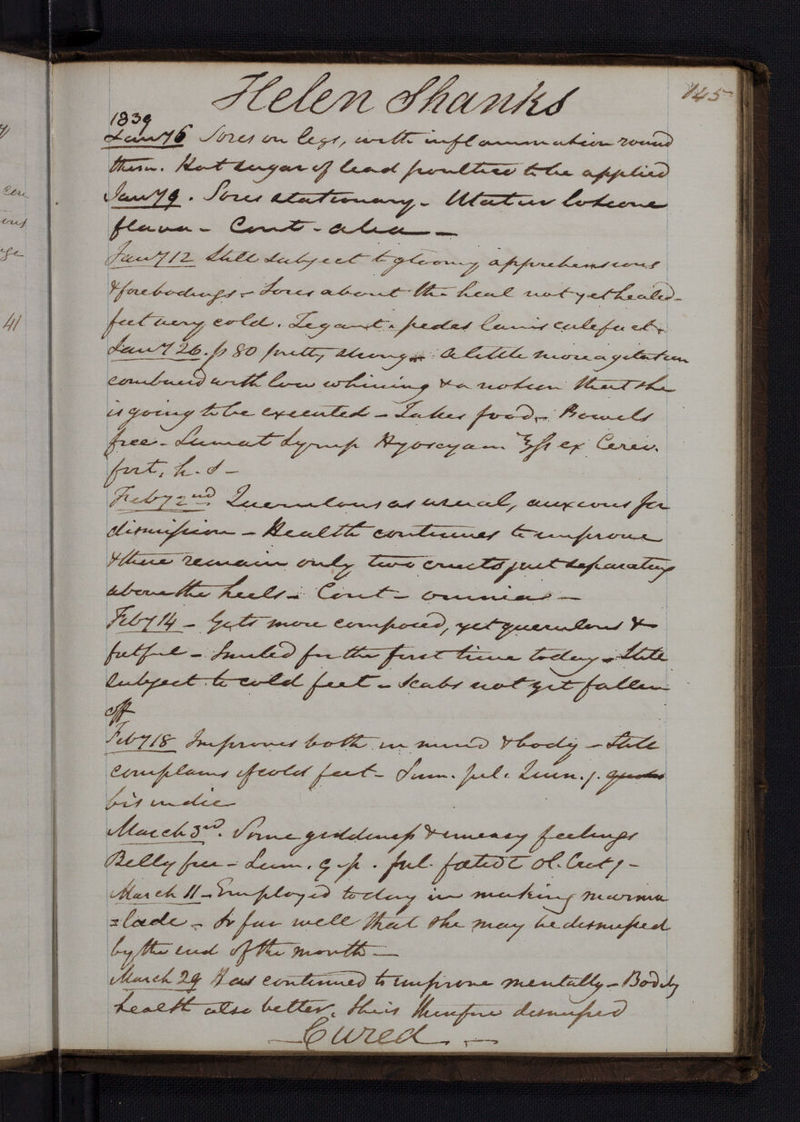 Helen Shanks
145
1839
Jany 6 Sores on legs, with inflammation round
them. Hot sugar of lead poultice to be applied
Jany 9. Sores stationary - Utatur lotione
flava - Cont. alia -
Jany 12 Still subject to gloomy apprehensions
& forebodings - Sores about the heel not yet healed -
feet very cold. Tegant. pedes lanis calefact.
Jany 26. p 80 pretty strong - A little more agitation
combined with low whining & a notion that she
is going to be executed - Takes food - Bowels
free - Sumat Syrup Hyoscyam ʒſs ex Cerev.
fort. h. s -
Feby 2nd Querulous as usual, anxious for
dismission - Health continues to improve
& there remain only two crusts just separating
above the heels - Cont - omnia -
Feby 14 - Gets more composed, yet querulous &
fretful - Smiled for the first time today - Still
subject to cold feet - Scabs not yet fallen
off
Feby 18 Improves both in mind & body - Still
complains of cold feet - Sum. pil. Quin. j.
bis in die
March 3rd. Some giddiness & uneasy feelings
Belly free - Sum. q. p. pil. fœtid c ol. Crot j -
March 11 - Employed today in making marma
=lade - So far well that she may be dismissed
by the end of the month -
March 29 Has continued to improve mentally - Bodily
health also better. She is therefore dismissed
- Cured -
41